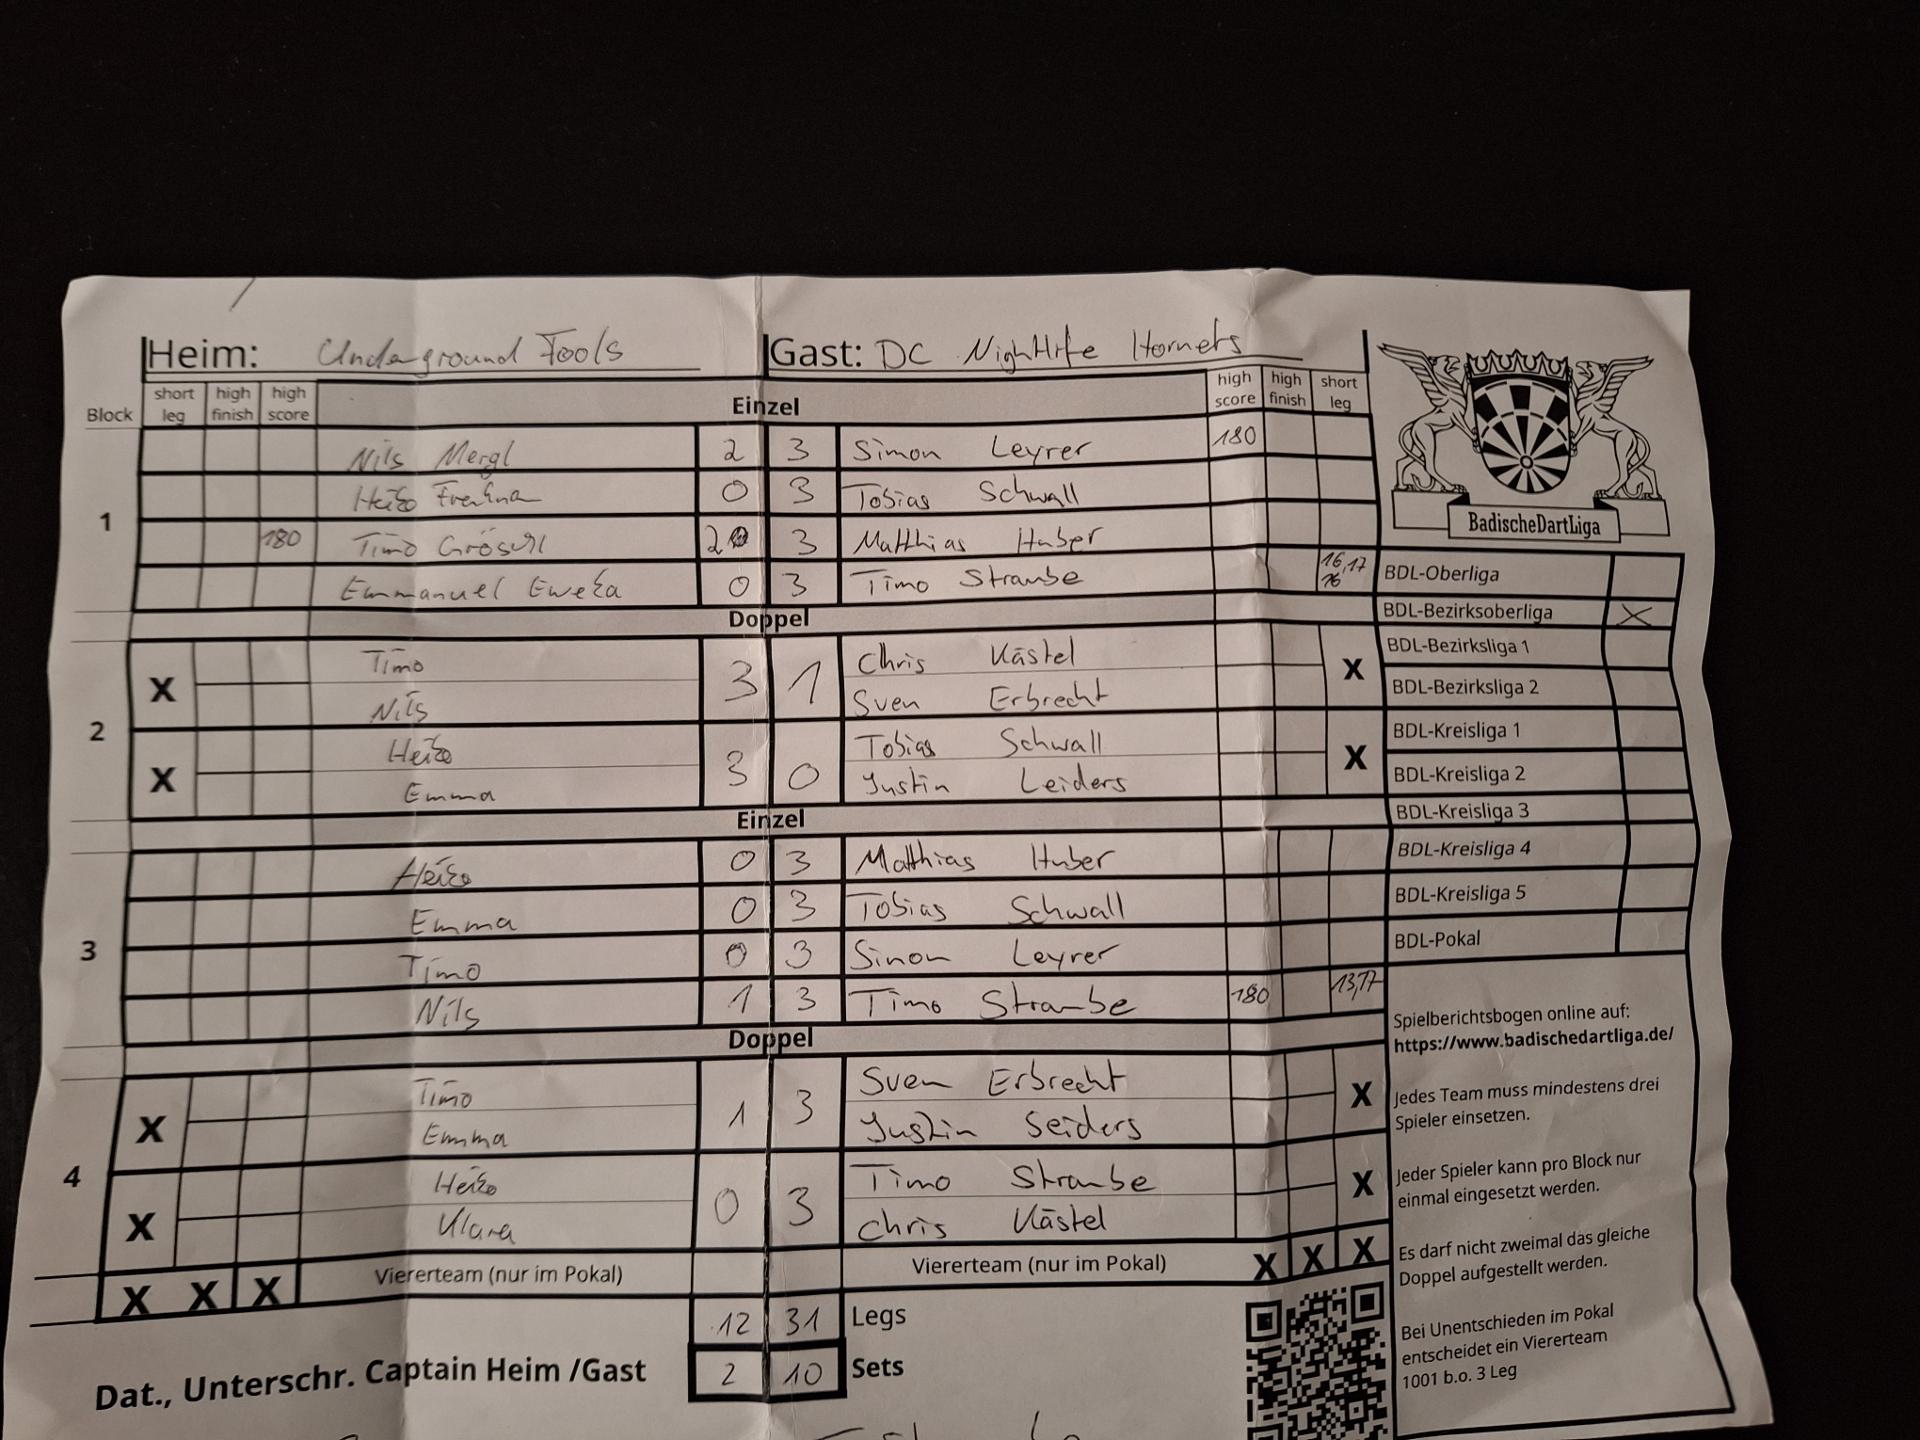 Heim: Underground Fools Gast: DC Nightlife Horners
Block short leg high finish high score Einzel high score high finish short leg
1
Nils Mergl 2 3 Simon Leyrer 180
Heiko 0 3 Tobias Schwall
180 Timo Gröschl 2 3 Matthias Huber
Emmanuel Eweka 0 3 Timo Straube 16,17 16
Doppel
2
X Timo 3 1 Chris Kästel X
Nils Sven Erbrecht
X Heiko 3 0 Tobias Schwall X
Emma Justin Leiders
Einzel
3
Heiko 0 3 Matthias Huber
Emma 0 3 Tobias Schwall
Timo 0 3 Simon Leyrer
Nils 1 3 Timo Straube 180 13,17
Doppel
4
X Timo 1 3 Sven Erbrecht X
Emma Justin Seiders
X Heiko 0 3 Timo Straube X
Klara Chris Kästel
X X X Viererteam (nur im Pokal) Viererteam (nur im Pokal) X X X
12 31 Legs
Dat., Unterschr. Captain Heim /Gast 2 10 Sets
BadischeDartLiga
BDL-Oberliga
BDL-Bezirksoberliga X
BDL-Bezirksliga 1
BDL-Bezirksliga 2
BDL-Kreisliga 1
BDL-Kreisliga 2
BDL-Kreisliga 3
BDL-Kreisliga 4
BDL-Kreisliga 5
BDL-Pokal
Spielberichtsbogen online auf:
https://www.badischedartliga.de/
Jedes Team muss mindestens drei
Spieler einsetzen.
Jeder Spieler kann pro Block nur
einmal eingesetzt werden.
Es darf nicht zweimal das gleiche
Doppel aufgestellt werden.
Bei Unentschieden im Pokal
entscheidet ein Viererteam
1001 b.o. 3 Leg